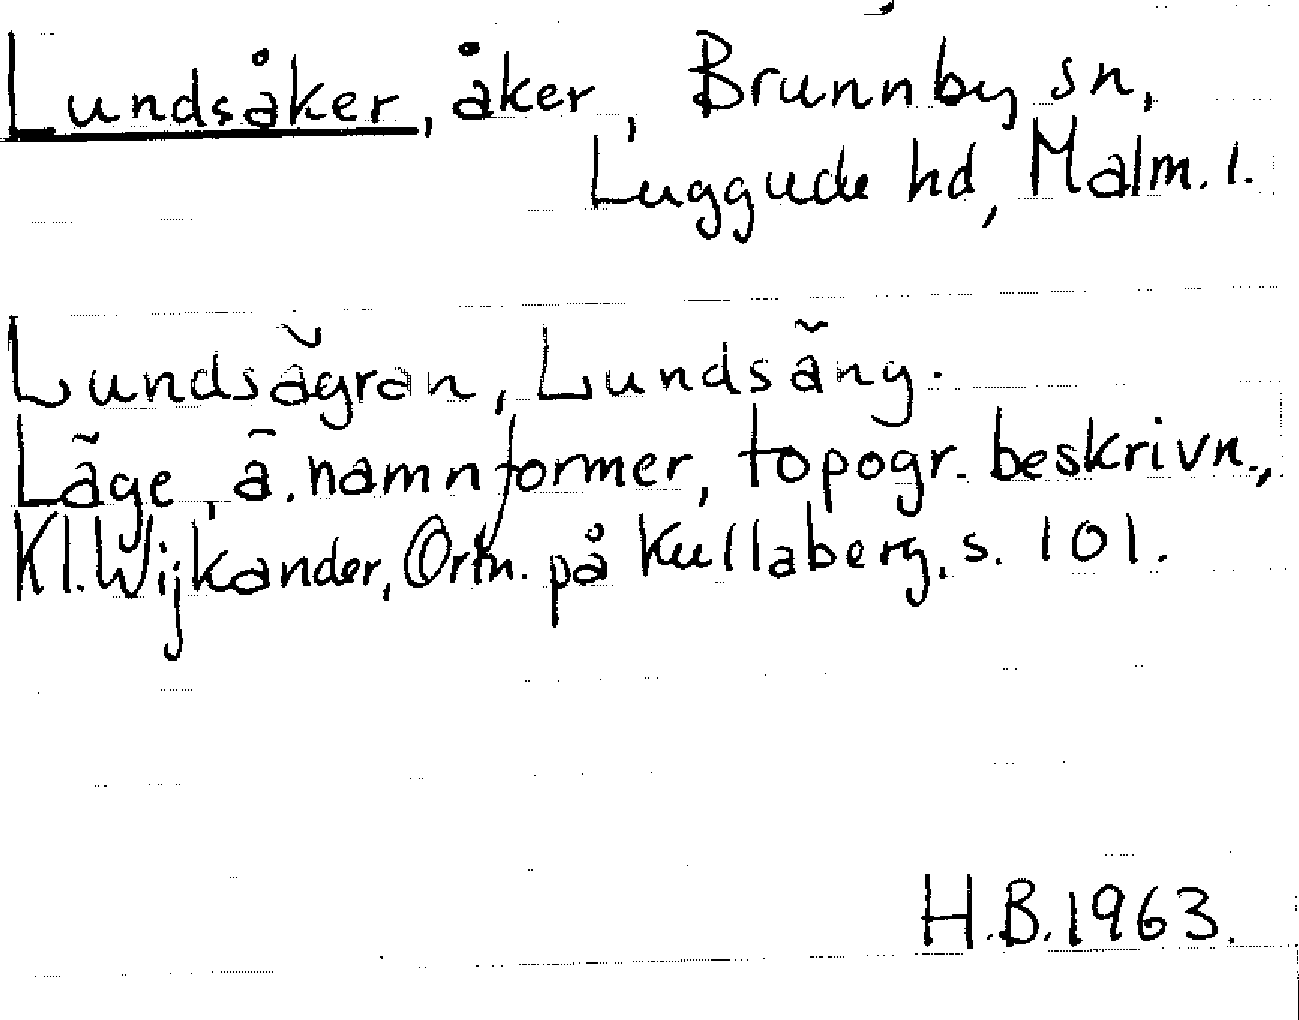 Lundsåker, åker, Brunnby sn,
Luggude hd, Malm. l.
Lundsägran, Lundsäng.
Läge, ä. namnformer, topogr. beskrivn.,
Kl. Wijkander, Ortn. på Kullaberg, s. 101.
H.B. 1963.